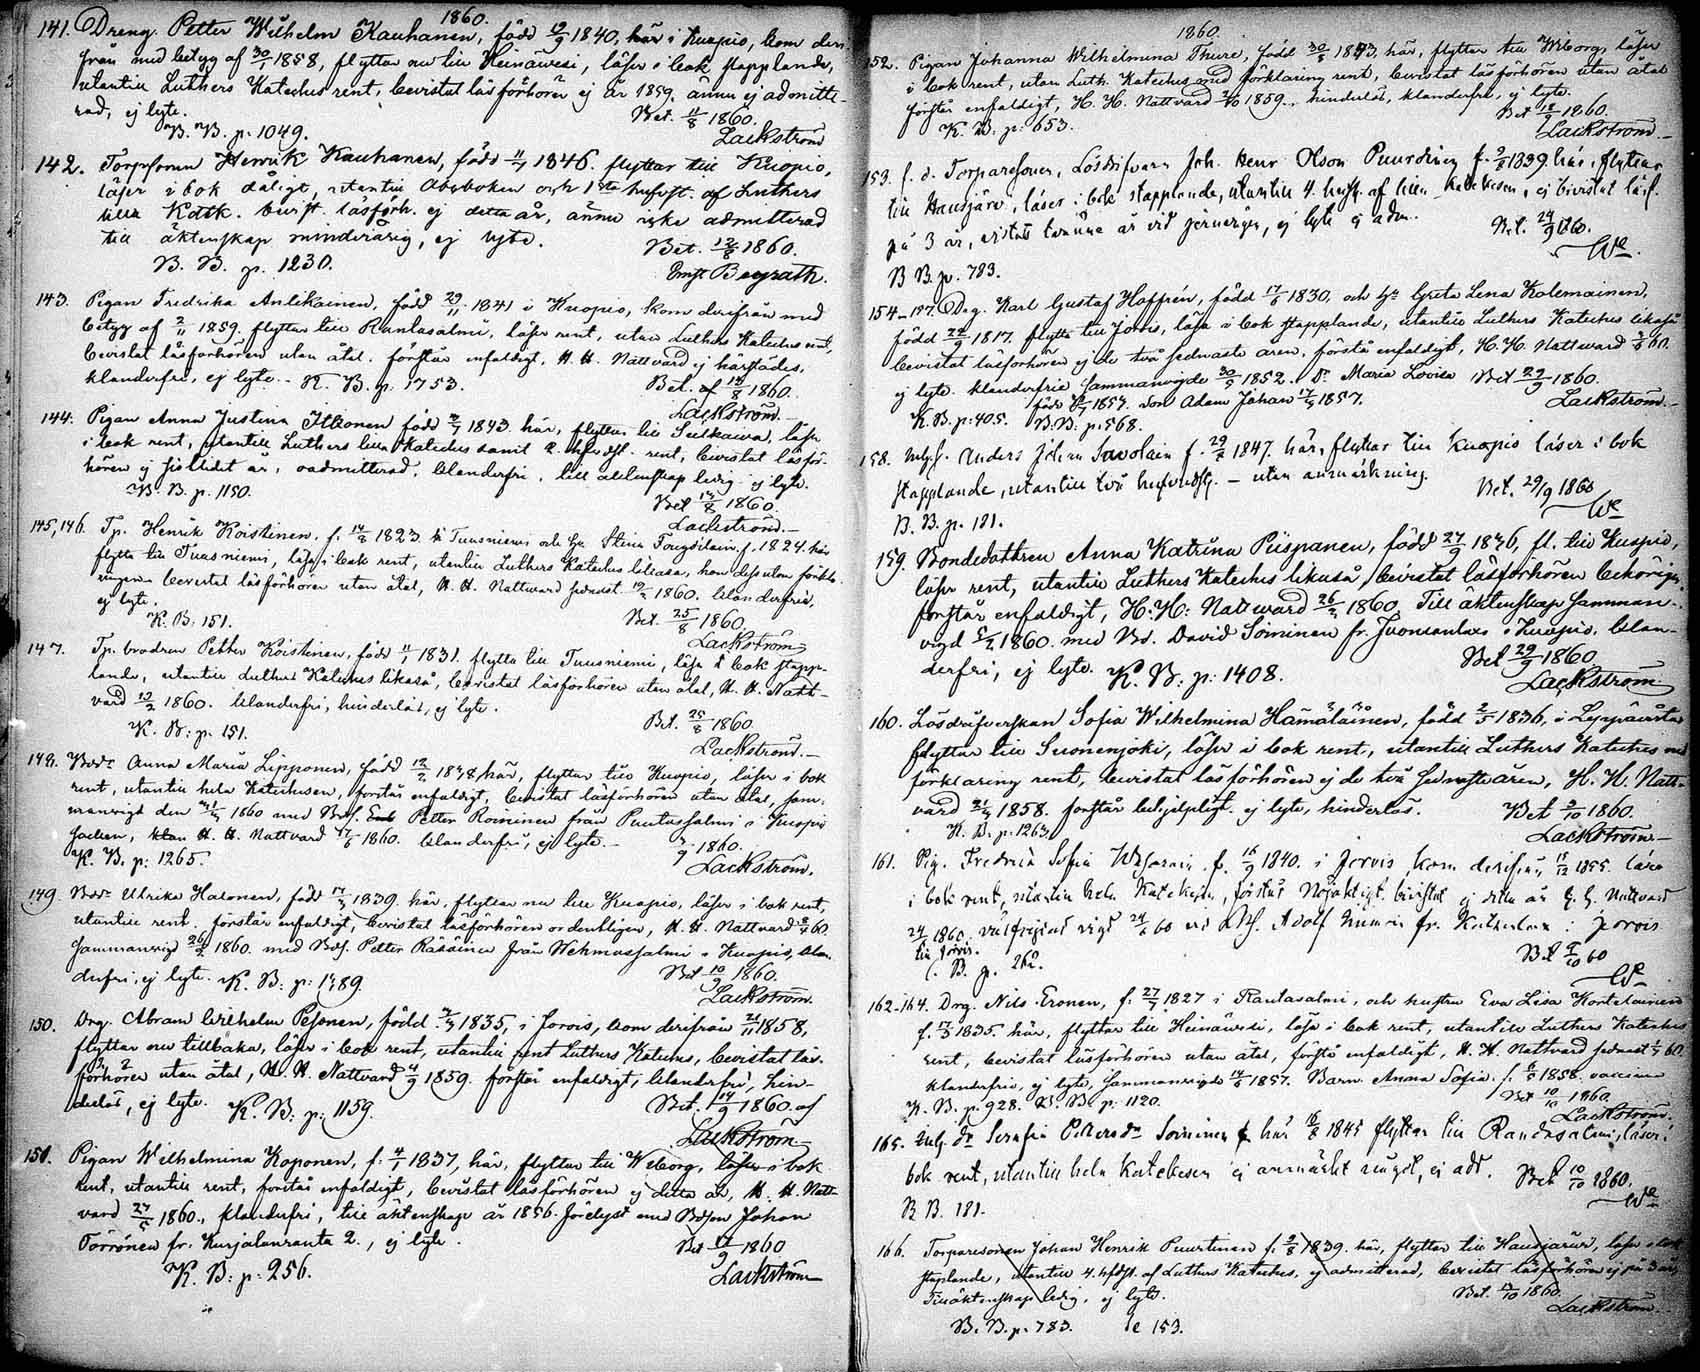 1860.
141. Dreng Petter Wilhelm Kauhanen, född 19/9 1840, här i Kuopio, kom der-
från med betyg af 30/7 1858, flyttar nu till Heinäwesi, läser i bok stapplande,
utantill Luthers Kateches rent, bevistat läsförhören ej år 1859, ännu ej admitte-
rad, ej lyte.
Bet. 11/8 1860.
B. B. p. 1049.
Lackström
142. Torpsonen Henrik Kauhanen, född 1846. flyttar till Kuopio,
läser i bok dåligt, utantill Abcboken och 1sta hufvst. af Luthers
lilla Katek. bevist. läsförh. ej detta år, ännu icke admitterad
till äktenskap minderårig, ej lyte.
Bet. 12/8 1860.
B. B. p. 1230.
143. Pigan Fredrika Antikainen, född 29/11 1841 i Kuopio, kom derifrån med
betyg af 2/11 1859. flyttar till Rantasalmi, läser rent, utan Luthers Kateches rent,
bevistat läsförhören utan åtal, förstår enfaldigt, H. H. Nattvard ej härstädes,
klanderfri, ej lyte. K. B. p. 1753.
Bet. 1860.
Lackström
144. Pigan Anna Justina Itkonen född 1843 här, flyttar till Sulkawa, läser
i bok rent, utantill Luthers lilla Kateches samt 2 hfvdst. rent, bevistat läsför-
hören ej sistlidet år, oadmitterad, klanderfri, till äktenskap ledig, ej lyte.
B. B. p. 1150.
Bet 14/8 1860.
Lackström
145, 146. Tp. Henrik Koistinen, f. 14/2 1823 Tuusniemi och hu Stina f. 1824 här
flytta till Tuusniemi, läser i bok rent, utantill Luthers Kateches likaså, hon dessutom förkla-
ringen bevistat läsförhören utan åtal, H. H. Nattvard senast 1860. klanderfria,
ej lyte.
K. B. 151.
Bet. 25/8 1860.
Lackström
147. Tp. brodren Petter Koistinen, född 11/1 1831. flytta till Tuusniemi, läser i bok stapp-
lande, utantill Luthers Kateches likaså, bevistat läsförhören utan åtal, H. H. Natt-
vard 1860. klanderfri, hinderlös, ej lyte.
K. B. p. 151.
Bet. 25/8 1860.
Lackström
148. Anna Maria Lipponen, född här, flyttar till Kuopio, läser i bok
rent, utantill hela Katechesen, förstår enfaldigt, bevistat läsförhören utan åtal, sam-
manvigd den 1860 med Petter Röininen från Puutossalmi i Kuopio
Socken, H. H. Nattvard 1860. klanderfri, ej lyte.
K. B. p: 1265.
1860.
Lackström.
149. Ulrika Halonen, född 1839 här, flyttar nu till Kuopio, läser i bok rent,
utantill rent, förstår enfaldigt, bevistat läsförhören ordentligen, H. H. Nattvard
Sammanvigd 1860. med Petter Räsänen från Wehmassalmi i Kuopio, klan-
derfri, ej lyte. K. B. p: 1489.
Bet 10/9 1860.
Lackström.
150. Drg. Abram Wilhelm Pesonen, född 1835, i Jorois, kom derifrån 1858,
flyttar nu tillbaka, läser i bok rent, utantill rent Luthers Kateches, bevistat läs-
förhören utan åtal, H. H. Nattvard 4/9 1859. förstår enfaldigt, klanderfri, hin-
derlös, ej lyte. K. B. p: 1159.
Bet. 14/9 1860. af
Lackström
151. Pigan Wilhelmina Koponen, f. 4/1 1837, här, flyttar till Wiborg, läser i bok
rent, utantill rent, förstår enfaldigt, bevistat läsförhören ej detta år, H. H. Natt-
vard 27/5 1860., klanderfri, till äktenskap år 1856. förelyst med Johan
Törrönen fr. Kurjalanranta 2., ej lyte.
K. B. p: 256.
Bet 1860
Lackström
1860.
152. Pigan Johanna Wilhelmina Thure, född 1843 här, flyttar till Wiborg, läser
i bok rent, utan Luth. Kateches med förklaring rent, bevistat läsförhören utan åtal
förstår enfaldigt, H. H. Nattvard 1859., hinderlös, klanderfri, ej lyte.
K. B. p: 653.
Bet 18/9 1860.
Lackström
153. f. d. Torparesonen, Lösdrifvaren Joh. Henr. Olson Puurtinen f. 2/8 1839 här, flyttar
till Hausjärvi, läser i bok stapplande, utantill 4. hufst. af lilla katekesen, ej bevistat läsf.
på 3 år, ej lyte ej adm.
B B. p. 783.
Bet. 24/9 1860.
We
154-157. Drg. Karl Gustaf Hoffrén, född 1830, och Greta Lena Kolemainen,
född 1817. flytta till Jorois, läsa i bok stapplande, utantill Luthers Kateches likaså
bevistat läsförhören ej de två sednaste åren, förstå enfaldigt, H. H. Nattward
ej lyte. klanderfria Sammanvigde 30/5 1852. Dr. Maria Lovisa
född 1854. son Adam Johan 1857.
Bet 29/9 1860.
K. B. p: 405. B. B. p: 568.
Lackström.
158. Anders Johan Savolain f. 29/ 1847 här, flyttar till Kuopio läser i bok
stapplande, utantill två hufvudst. – utan anmärkning.
B. B. p. 181.
Bet. 29/9 1860
We
159. Bondedottren Anna Katrina Piispanen, född 27/9 1836, fl. till Kuopio,
läser rent, utantill Luthers Kateches likaså, bevistat läsförhören behörigen,
förstår enfaldigt, H: H: Nattward 26/2 1860. Till äktenskap Samman-
vigd 1860 med David Soininen fr. i Kuopio. klan-
derfri, ej lyte. K. B. p: 1408.
Bet 29/9 1860
Lackström
160. Lösdrifverskan Sofia Wilhelmina Hämäläinen, född 2/5 1836, i Leppävirta
flyttar till Suonenjoki, läser i bok rent, utantill Luthers Kateches med
förklaring rent, bevistat läsförhören ej de två sednaste åren, H. H. Natt-
vard 1858. förstår behjelpligt. ej lyte, hinderlös.
K. B. p: 1263.
Bet 2/10 1860.
Lackström
161. Pig. Fredrika Sofia f. 16/9 1840. i Jorois, kom derifrån 1855 läser
i bok rent, utantill hela Katekesen, förstår Nöjaktigt, bevistat ej detta år H. H. Nattvard
1860. välfrejdad vigd med Adolf fr. i Jorois
till Jorois.
B. p. 262.
Bet 2/10 60
We
162-164. Drg. Nils Eronen, f: 27/7 1827 i Rantasalmi, och hustru Eva Lisa Kortelainen
f. 1835 här, flyttar till Heinäwesi, läsa i bok rent, utantill Luthers Kateches
rent, bevistat läsförhören utan åtal, förstå enfaldigt, H. H. Nattvard sednast
klanderfria, ej lyte, Sammanvigde 14/6 1857. Barn Anna Sofia f. 1858 vaccinerad
K. B. p: 928. B. B. p: 1120.
Bet 10/10 1860.
Lackström.
165. Serafia Petersdr Soininen här 1845 flyttar till Randasalmi, läser i
bok rent, utantill hela Katekesen ej anmärkt något, ej adt.
Bet 10/10 1860.
B B. 181.
We
166. Torparesonen Johan Henrik Puurtinen f. 2/8 1839. här, flyttar till Hausjärvi, läser i bok
staplande, utantill 4. hfdst. af Luthers Kateches, ej admitterad, bevistat läsförhören ej på 3 år,
Till äktenskap ledig, ej lyte.
Bet. 1860.
B. B. p. 783. e 153.
Lackström.